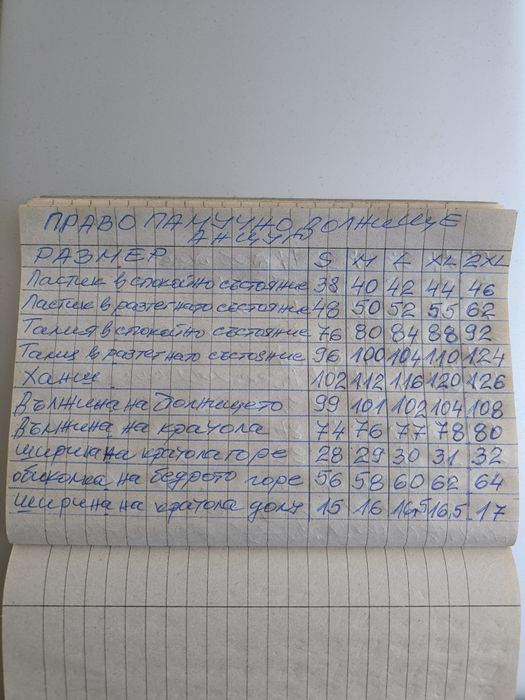 ПРАВО ПАМУЧНО ДОЛНИЩЕ
АНЦУГ
РАЗМЕР S M L XL 2XL
Ластик в спокойно състояние 38 40 42 44 46
Ластик в разтегнато състояние 48 50 52 55 62
Талия в спокойно състояние 76 80 84 88 92
Талия в разтегнато състояние 96 100 104 110 124
Ханш 102 112 116 120 126
Дължина на долнището 99 101 102 104 108
Дължина на крачола 74 76 77 78 80
ширина на крачола горе 28 29 30 31 32
обиколка на бедрото горе 56 58 60 62 64
ширина на крачола долу 15 16 16,5 16,5 17